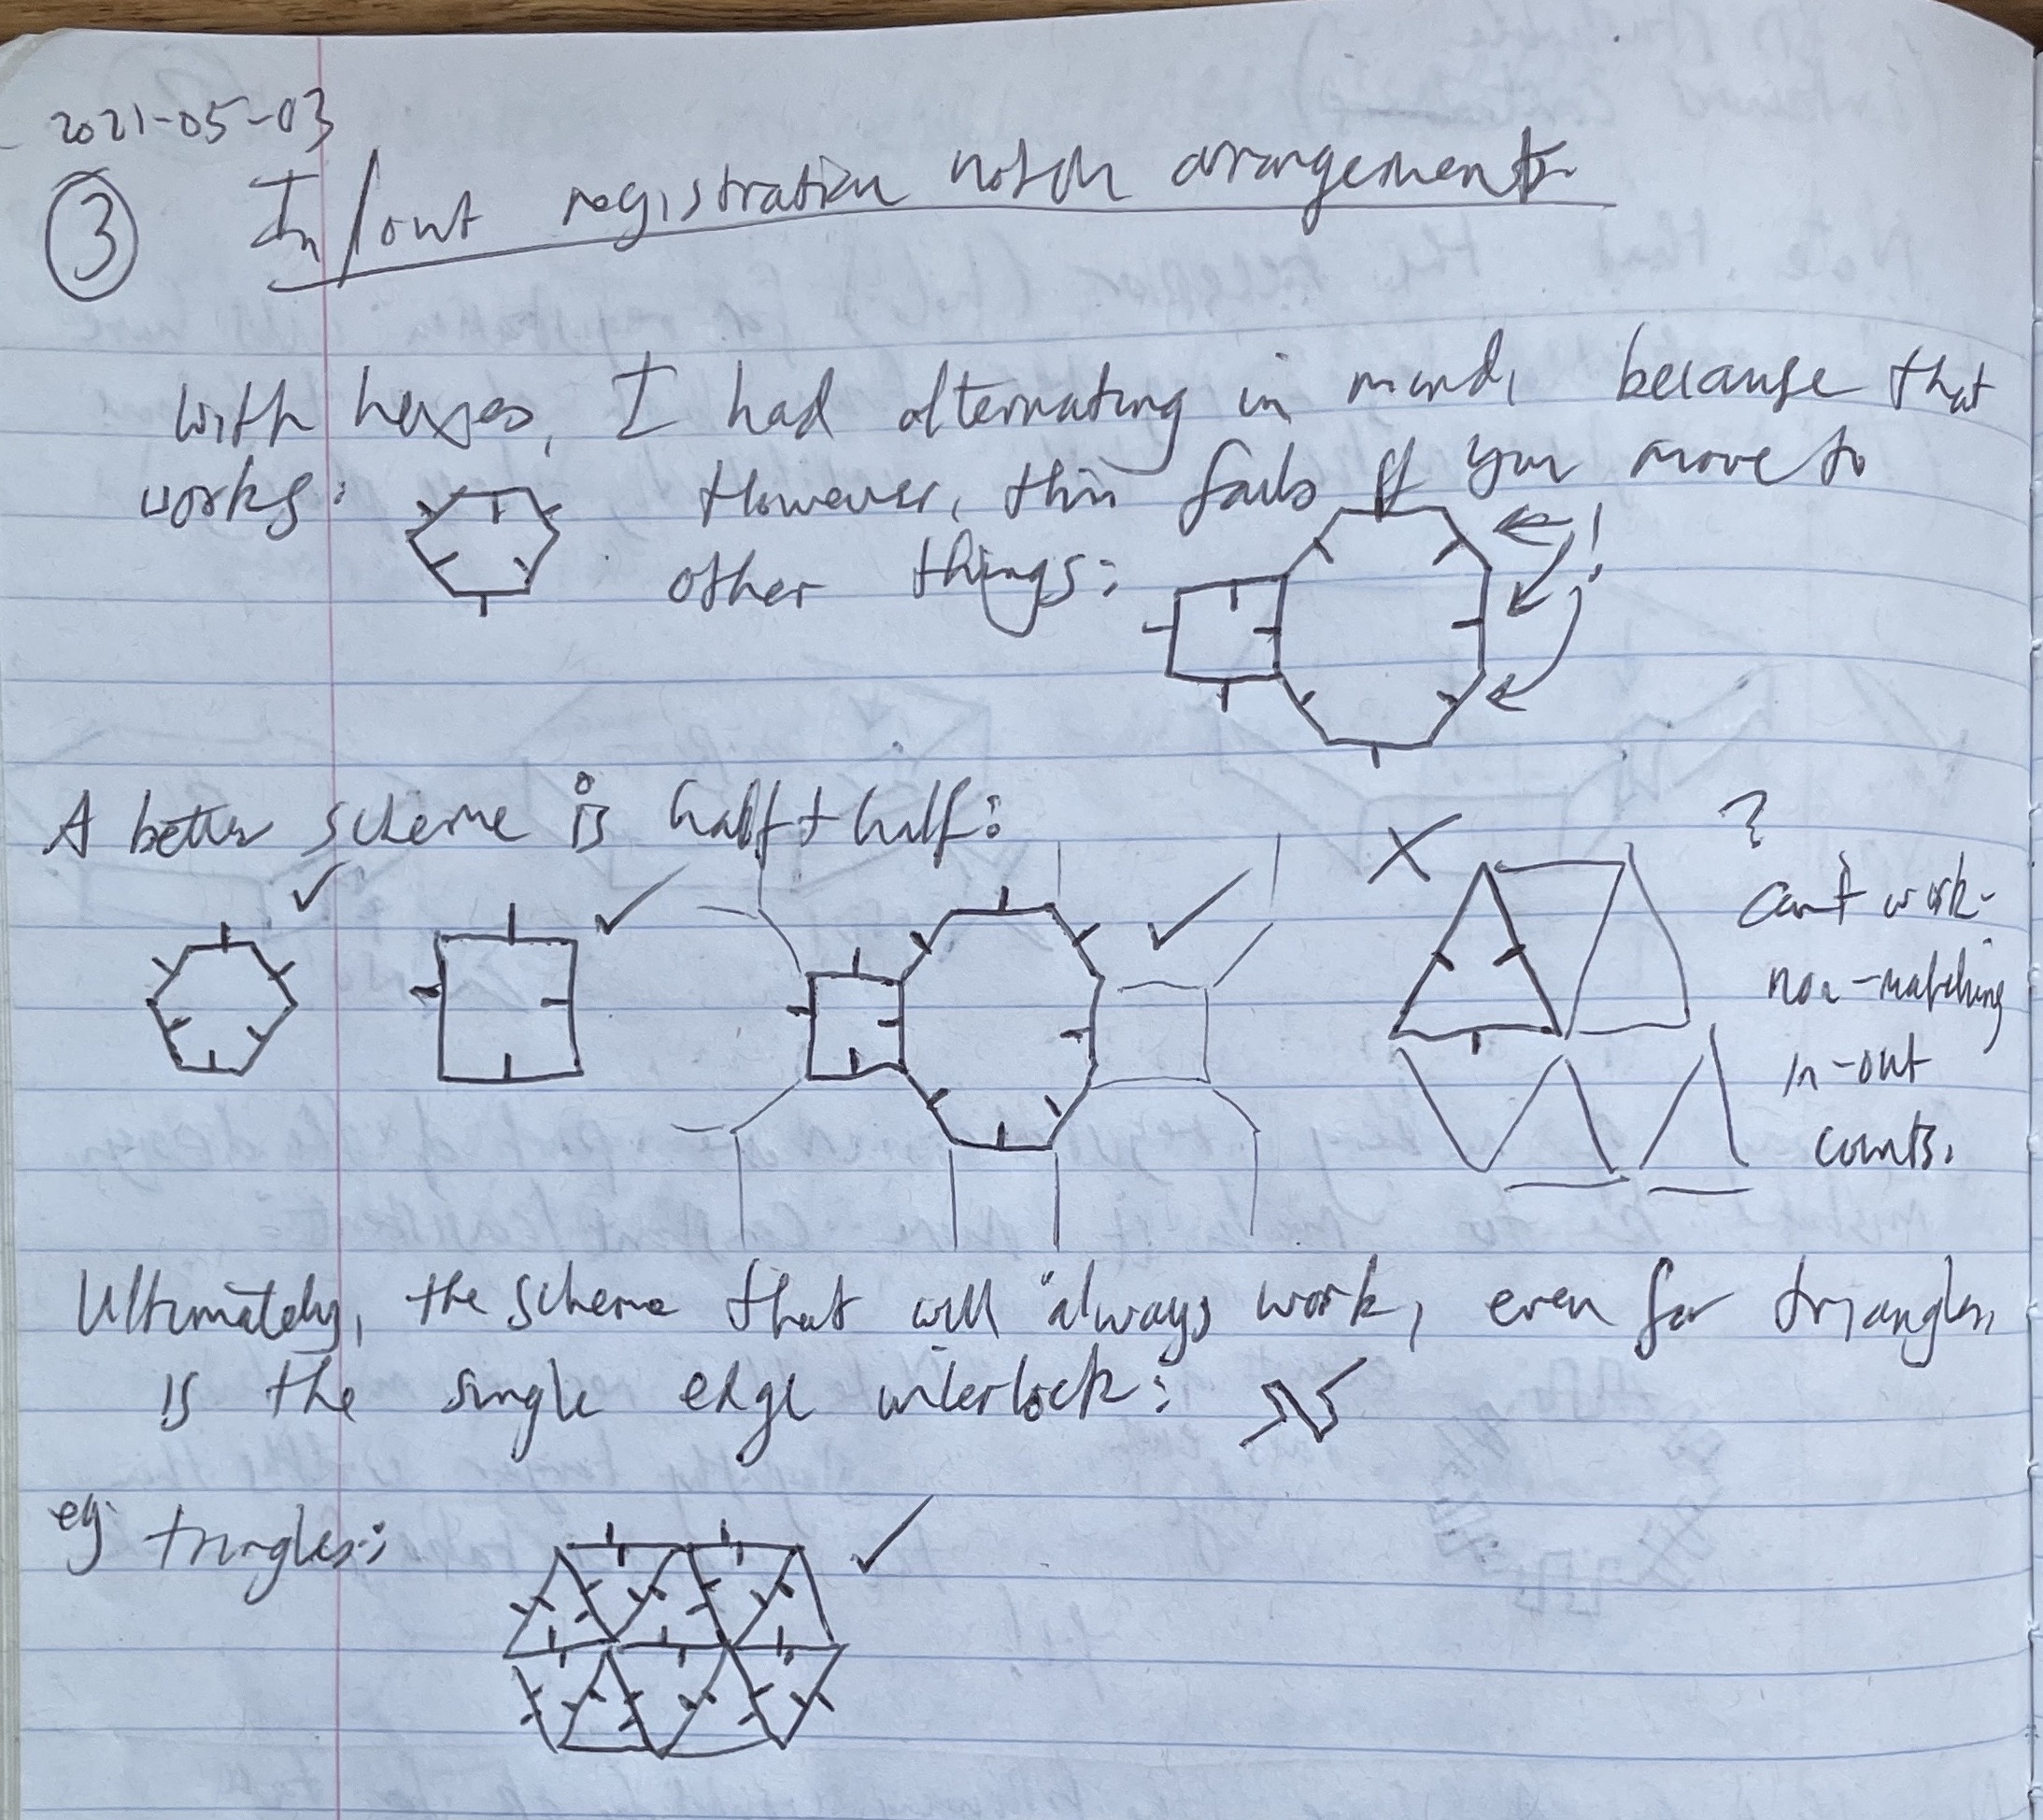 2021-05-03
③ In/out registration notch arrangements
With hexes, I had alternating in mind, because that
works: However, this fails if you move to
other things: !
A better scheme is half + half:
?
Can't work-
non-matching
in-out
counts.
Ultimately, the scheme that will always work, even for triangles,
is the single edge interlock:
eg triangles: